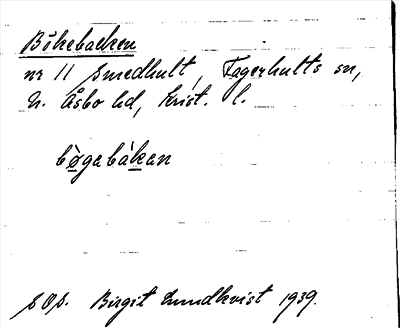 Bökebacken
nr 11 Smedhult, Fagerhults sn,
N. Åsbo hd, Krist. l.
bø̀gabákan
SOA. Birgit Lundkvist 1939.